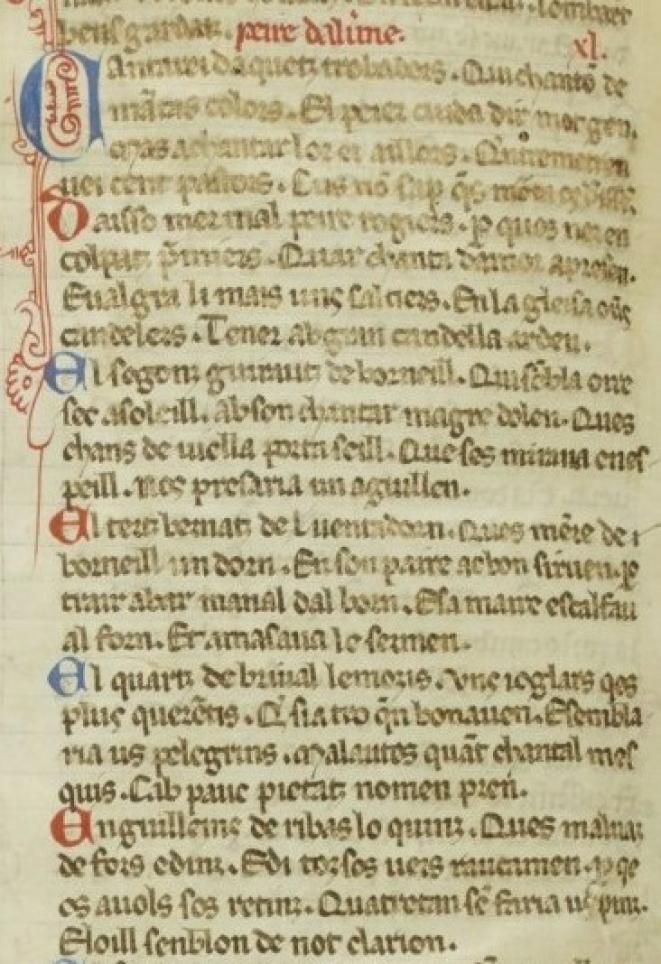 bens gardar. peire daluerne. xl.
Cantarai daquetz trobadors. Qui chantō de
māntas colors. El peier cuida dir mor gen.
oras achantar lor er aillors. Quentremetren
uei cent pastors. Cus nō sap q̄s
Daisso mer mal peire rogiers. ꝑ quos ner en
colpatz p̄miers. Quar chanta damor apresen.
E ualgra li mais uns salters. En la gleisa
candelers. Tener ab gran candella arden.
El segonz girautz de borneill. Qui sēbla oire
sec a soleill. Ab son chantar magre dolen. Ques
chans de uiella porta seill. Que ses miraua enes
peill. nos presaria un aguillen.
El tertz bernatz de l uentadorn. Ques mēre de
borneill un dorn. En son paire ac bon siruen. ꝑ
trair ab arc manal dal born. Esa maire escalfau
al forn. Er amasaua le sermen.
El quartz de briual lemozis. Uns ioglars qes
plus querētis. Q̄ sia tro q̄n bonauen. E sembla
ria us pelegrins. malautes quāt chantal mes
quis. Cab pauc pietatz nomen pren.
En guillems de ribas lo quinz. Ques maluatz
de fors e dinz. E di tot sos uers raucamen. ꝑ qe
os auols sos retinz. Quatretan sē faria us pinz.
E loill senblon de not clarion.